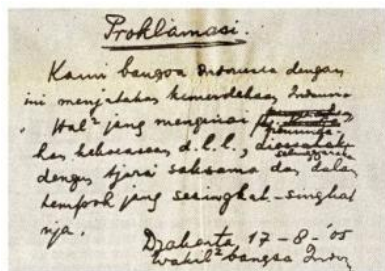 Proklamasi.
Kami bangsa Indonesia dengan
ini menjatakan kemerdekaan Indonesia
. Hal² jang mengenai
kan kekoeasaan d.l.l.,
dengan tjara saksama dan dalam
tempoh jang sesingkat-singkat
nja.
Djakarta, 17 - 8 - '05
Wakil² bangsa Indon